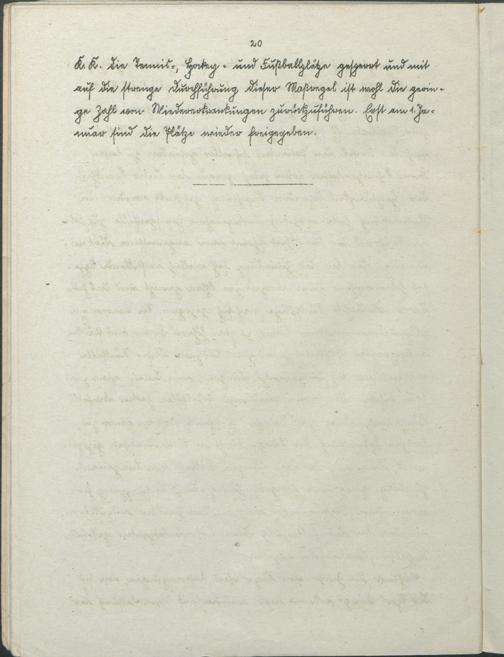 20
K. K. die Tennis-, Hockey- und Fußballplätze gesperrt und mit
auf die strenge Durchführung dieser Maßregel ist wohl die gerin-
ge Zahl von Wiedererkrankungen zurückzuführen. Erst am 1. Ja-
nuar sind die Plätze wieder freigegeben.